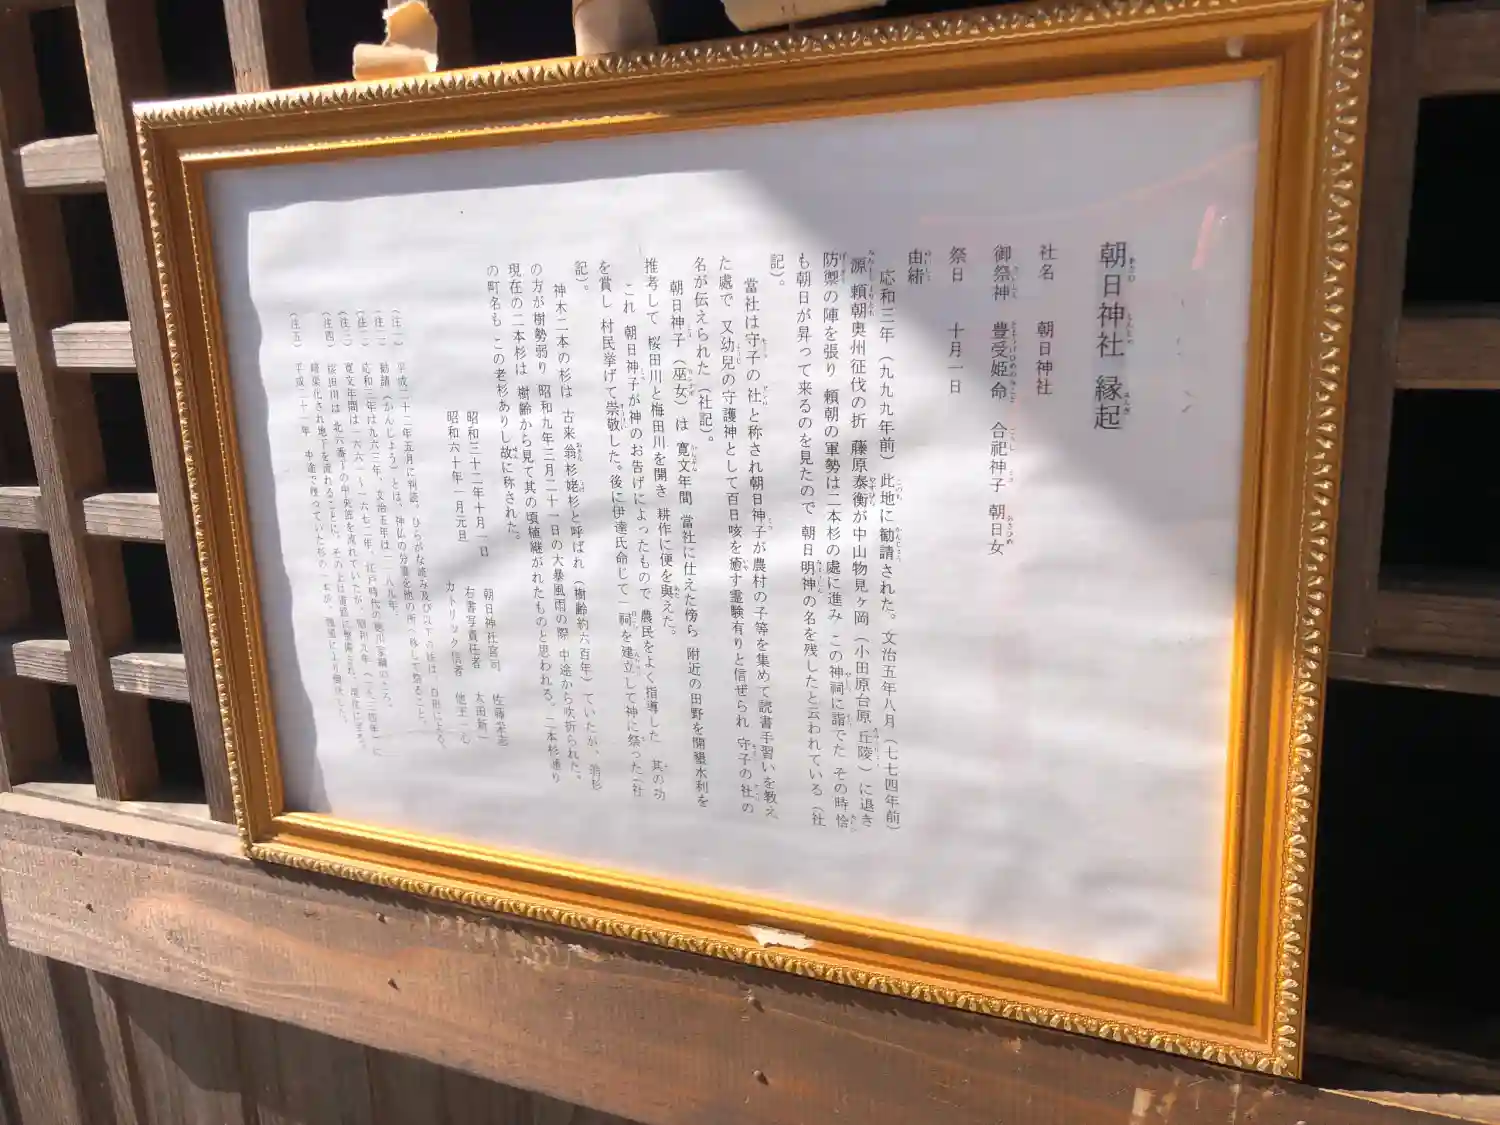 朝日神社 縁起
社名 朝日神社
御祭神 豊受姫命 合祀神子 朝日女
祭日 十月一日
由緒
応和三年（九九九年前）此地に勧請された。文治五年八月（七七四年前）
源 頼朝奥州征伐の折 藤原泰衡が中山物見ヶ岡（小田原台原 丘陵）に退き
防禦の陣を張り 頼朝の軍勢は二本杉の處に進み この神祠に詣でた その時 恰
も朝日が昇って来るのを見たので 朝日明神の名を残したと云われている（社
記）。
當社は守子の社と称され朝日神子が農村の子等を集めて読書手習いを教え
た處で 又幼児の守護神として百日咳を癒す霊験有りと信ぜられ 守子の社の
名が伝えられた（社記）。
朝日神子（巫女）は 寛文年間 當社に仕えた傍ら 附近の田野を開墾水利を
推考して 桜田川と梅田川を開き 耕作に便を與えた。
これ 朝日神子が神のお告げによったもので 農民をよく指導した 其の功
を賞し 村民挙げて崇敬した。後に伊達氏命じて一祠を建立して神に祭った（社
記）。
神木二本の杉は 古来 翁杉姥杉と呼ばれ（樹齢約六百年）ていたが、翁杉
の方が樹勢弱り 昭和九年三月二十一日の大暴風雨の際 中途から吹折られた。
現在の二本杉は 樹齢から見て其の頃植継がれたものと思われる。二本杉通り
の町名も この老杉ありし故に称された。
昭和三十二年十月一日 朝日神社宮司 佐藤
昭和六十年一月元旦 右書写責任者 太田新一
カトリック信者
（注一） 平成二十二年五月に判読。ひらがな読み及び以下の注は、
（注二） 勧請（かんじょう）とは、神仏の分霊を他の所へ移して祭ること。
（注三） 応和三年は九六三年、文治五年は一一八九年。
寛文年間は一六六一～一六七二年。江戸時代の
（注四） 桜田川は 北六番丁の中央部を流れていたが、昭和九年（一九三四年）に
暗渠化され地下を流れることに。その上は道路に整備され、
（注五） 平成二十一年 中途で残っていた杉の一本が、強風により倒伏した。